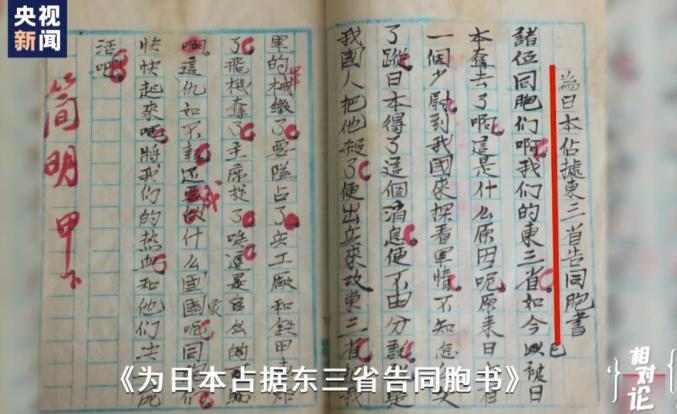 央视新闻
為日本佔據東三省告同胞書
諸位同胞們啊我們的東三省如今已被日
本奪去了啊這是什么原因呢原來日
一個少尉到我國來探看軍情不知怎
了蹤日本得了這個消息便不由分說是
我國人把他殺了便出兵來攻東三省
軍的械缴了要隘占了兵工廠和鉄甲
了飛機奪了主席捉了唉這是
啊這仇如不報還要做什么國家呢同
快快起來吧將我們的热血和他們决死
活吧
简明 甲下
《为日本占据东三省告同胞书》
相对论